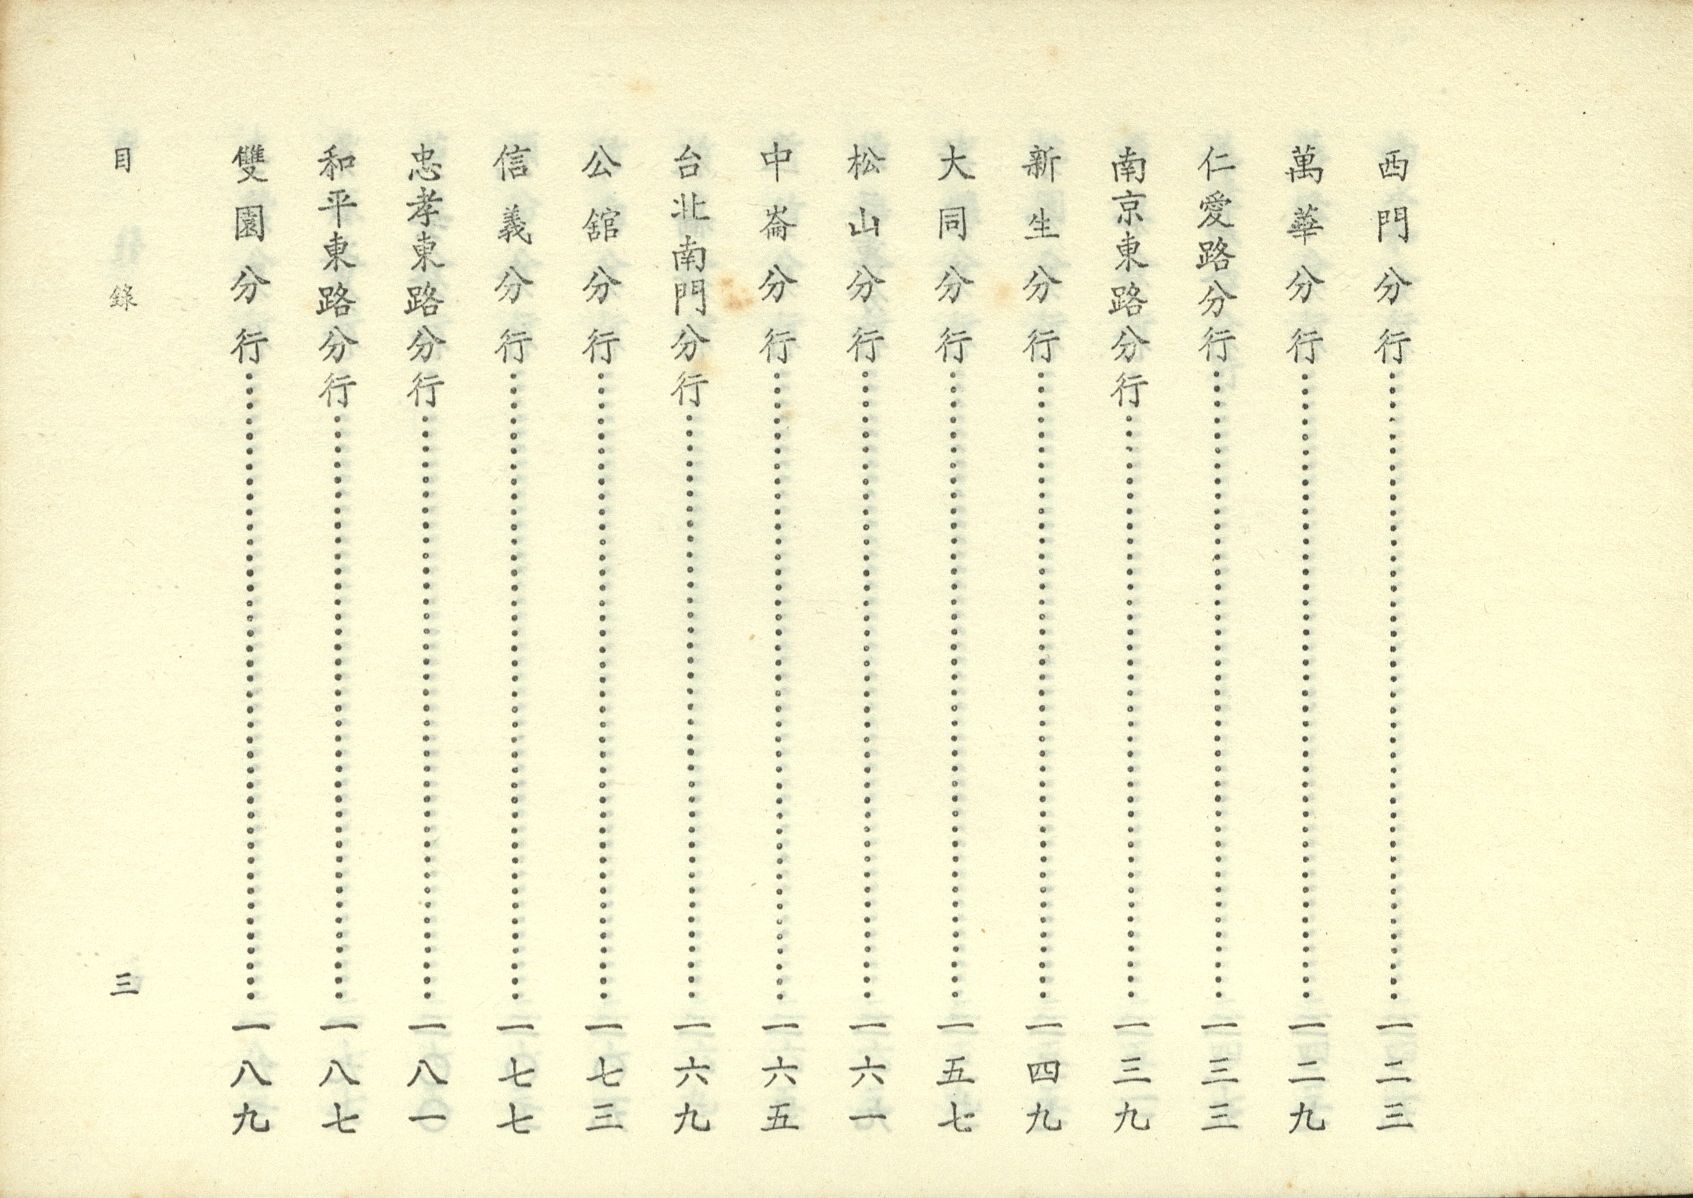 西門分行……一二三
萬華分行……一二九
仁愛路分行……一三三
南京東路分行……一三九
新生分行……一四九
大同分行……一五七
松山分行……一六一
中崙分行……一六五
台北南門分行……一六九
公館分行……一七三
信義分行……一七七
忠孝東路分行……一八一
和平東路分行……一八七
雙園分行……一八九
目錄
三